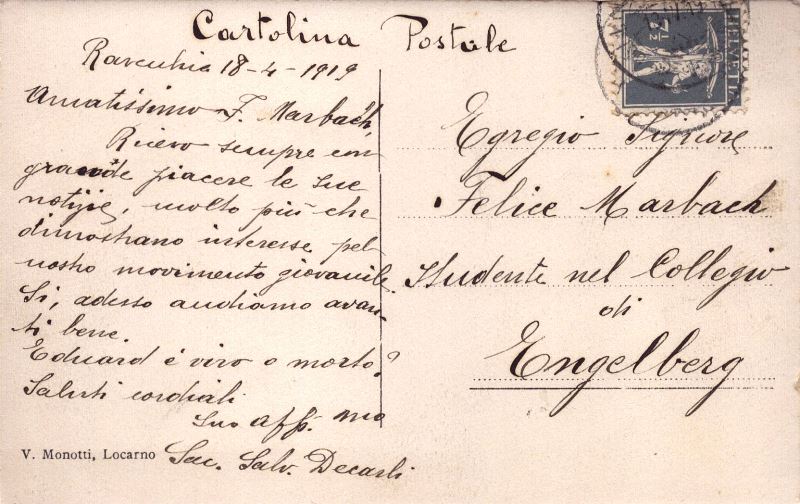 Cartolina Postale
Ravecchia 18-4-1919
Amatissimo F. Marbach,
Ricevo sempre con
grande piacere le sue
notizie, molto più che
dimostrano interesse pel
nostro movimento giovanile.
Si, adesso andiamo avan-
ti bene.
Eduard è vivo o morto?
Saluti cordiali
Suo aff. mo
Sac. Salv. Decarli
V. Monotti, Locarno
HELVETIA
7½
Egregio Signore
Felice Marbach
Studente nel Collegio
di
Engelberg